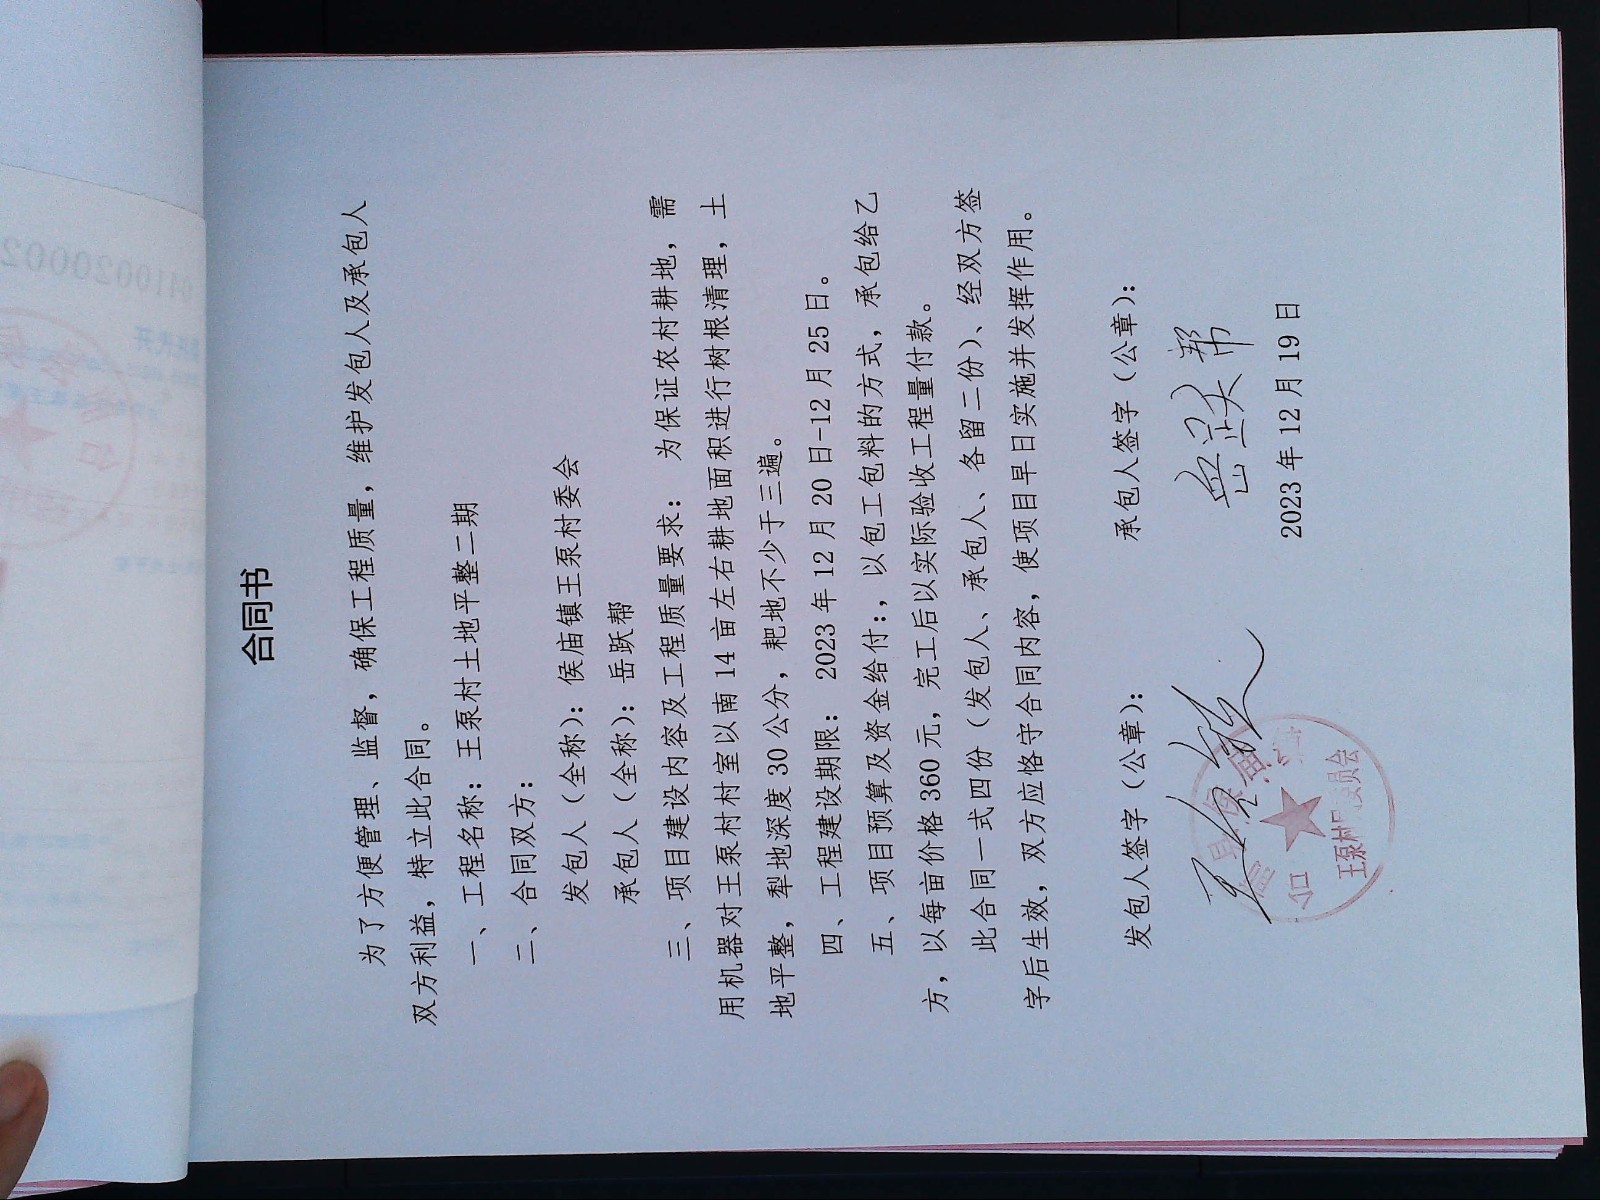 合同书
为了方便管理、监督，确保工程质量，维护发包人及承包人
双方利益，特立此合同。
一、工程名称：王泵村土地平整二期
二、合同双方：
发包人（全称）：侯庙镇王泵村委会
承包人（全称）：岳跃帮
三、项目建设内容及工程质量要求： 为保证农村耕地，需
用机器对王泵村村室以南 14 亩左右耕地面积进行树根清理，土
地平整，犁地深度 30 公分，耙地不少于三遍。
四、工程建设期限： 2023 年 12 月 20 日-12 月 25 日。
五、项目预算及资金给付：，以包工包料的方式，承包给乙
方，以每亩价格 360 元，完工后以实际验收工程量付款。
此合同一式四份（发包人、承包人、各留二份）、经双方签
字后生效，双方应恪守合同内容，使项目早日实施并发挥作用。
发包人签字（公章）：
承包人签字（公章）：
岳跃帮
王泵村民委员会
2023 年 12 月 19 日